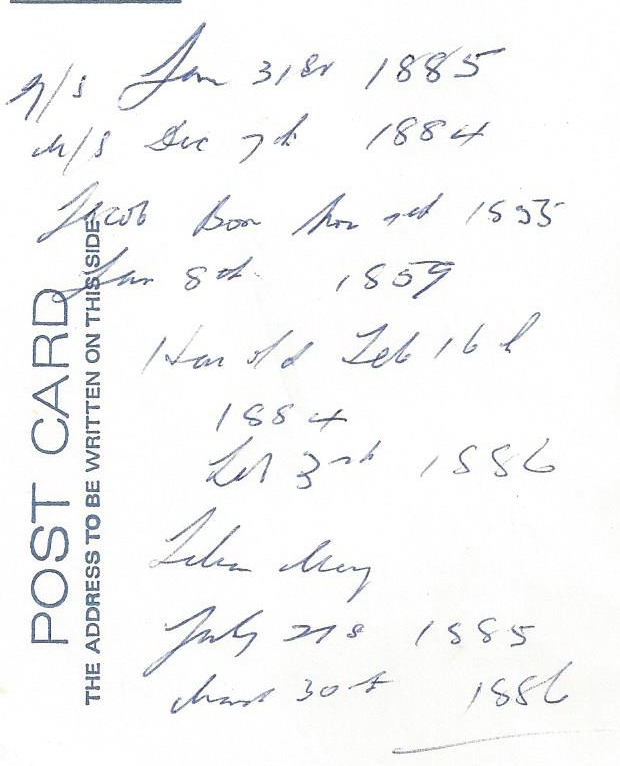 Jan 31st 1885
Dec 7th 1884
Jacob Born Nov 1855
Jan 8th 1859
Harold Feb 16th
1884
Feb 3rd 1886
May
July 21s 1885
30th 1886
POST CARD
THE ADDRESS TO BE WRITTEN ON THIS SIDE